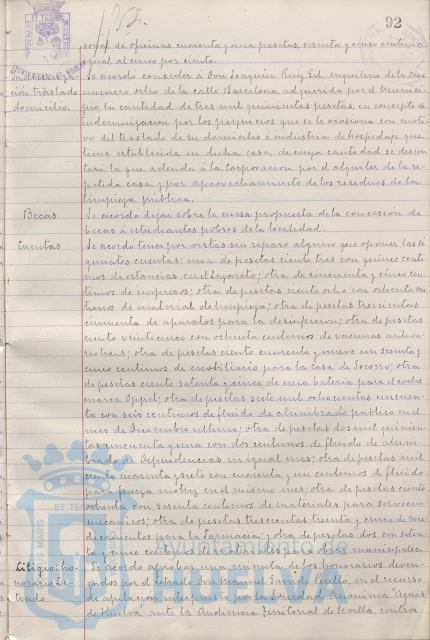 92
sonal de oficinas cuarenta y una pesetas, sesenta y cinco centimos
igual al cinco por ciento.
ción traslado
domicilio.
Se acordo conceder a Don Joaquin Ruiz Gil, inquilino de la casa
numero ocho de la calle Barcelona, adquirida por el Munici-
pio, la cantidad de tres mil quinientas pesetas, en concepto de
indemnizacion por los perjuicios que se le ocasiona con moti-
vo del traslado de su domicilio é industria de hospedaje que
tiene establecida en dicha casa, de cuya cantidad se descon-
tará la que adeuda á la Corporacion por el alquiler de la re-
petida casa y por aprovechamiento de los residuos de la
limpieza pública.
Becas
Se acordó dejar sobre la mesa propuesta de la concesión de
becas á estudiantes pobres de la localidad.
Cuentas
Se acordó tener por vistas sin reparo alguno que oponer las si-
guientes cuentas: una de pesetas ciento tres con quince centi-
mos de estancias en el Lazareto; otra de cincuenta y cinco cen-
timos de impresos; otra de pesetas ciento ocho con ochenta cen-
timos de material de limpieza; otra de pesetas trescientas
cincuenta de aparatos para la desinfeccion; otra de pesetas
ciento veinticinco con ochenta centimos de vacunas antiva-
riolicas; otra de pesetas ciento cuarenta y nueve con sesenta y
cinco centimos de mobiliario para la Casa de Socorro; otra
de pesetas ciento setenta y cinco de una bateria para el coche
marca Oppel; otra de pesetas siete mil ochocientas cincuen-
ta con seis centimos de fluido de alumbrado publico en el
mes de Diciembre ultimo; otra de pesetas dos mil quinien-
tas cincuenta y una con dos centimos de fluido de alum-
brado de Dependencias en igual mes; otra de pesetas mil
ciento cuarenta y siete con cuarenta y un centimos de fluido
para fuerza motriz en el mismo mes; otra de pesetas ciento
ochenta, con sesenta centimos de materiales para servicios
mecanicos; otra de pesetas trescientas treinta y cinco de me-
dicamentos para la Farmacia; otra de pesetas dos con seten-
ta y cinco centimos de materiales para obras municipales.
Litigio, ho-
norarios Le-
trado.
Se acordo aprobar una minuta de los honorarios deven-
gados por el letrado Don Manuel Garrido Perelló, en el recurso
de apelacion interpuesto por la Sociedad Anonima "Aguas
de Huelva", ante la Audiencia Territorial de Sevilla, contra